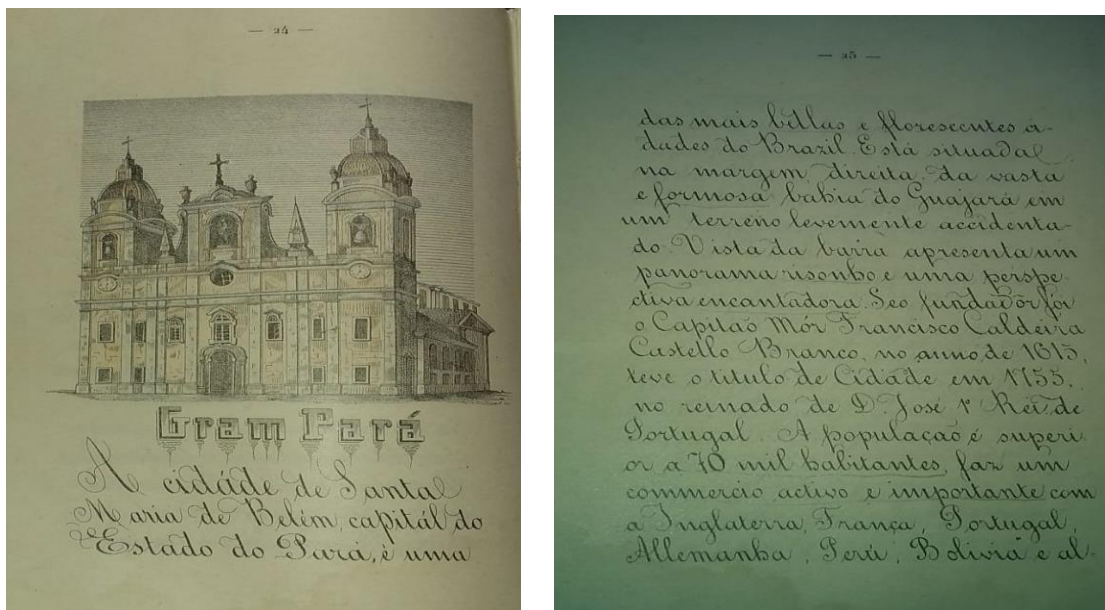 — 24 —
Gram Pará
A cidáde de Santa
Maria de Belém, capitál do
Estado do Pará, é uma
— 25 —
das mais bellas e florescentes ci-
dades do Brazil. Está situada
na margem direita da vasta
e formosa bahia do Guajará em
um terreno levemente accidenta-
do. Vista da barra apresenta um
panorama risonho e uma perspe-
ctiva encantadora. Seo fundador foi
o Capitão Mór Francisco Caldeira
Castello Branco, no anno de 1615,
teve o titulo de Cidade em 1755,
no reinado de D. José 1º Rei de
Portugal. A população é superi-
or a 70 mil habitantes, faz um
commercio activo e importante com
a Inglaterra, França, Portugal,
Allemanha, Perú, Bolivia e al-